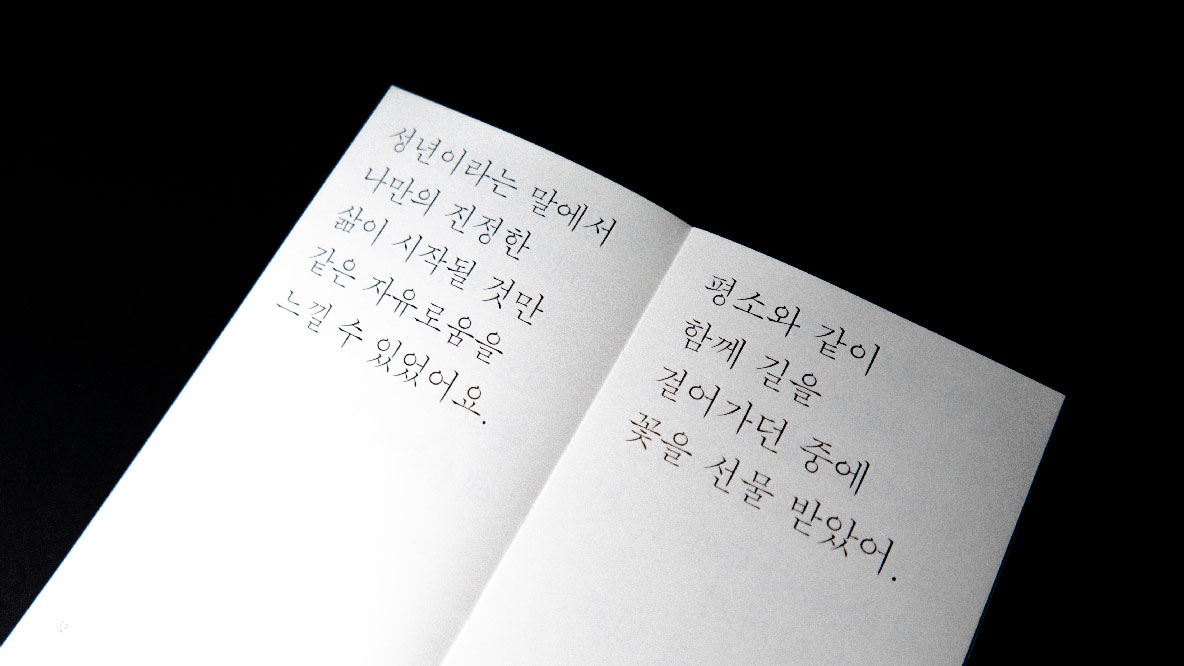 성년이라는 말에서
나만의 진정한
삶이 시작될 것만
같은 자유로움을
느낄 수 있었어요.
평소와 같이
함께 길을
걸어가던 중에
꽃을 선물 받았어.